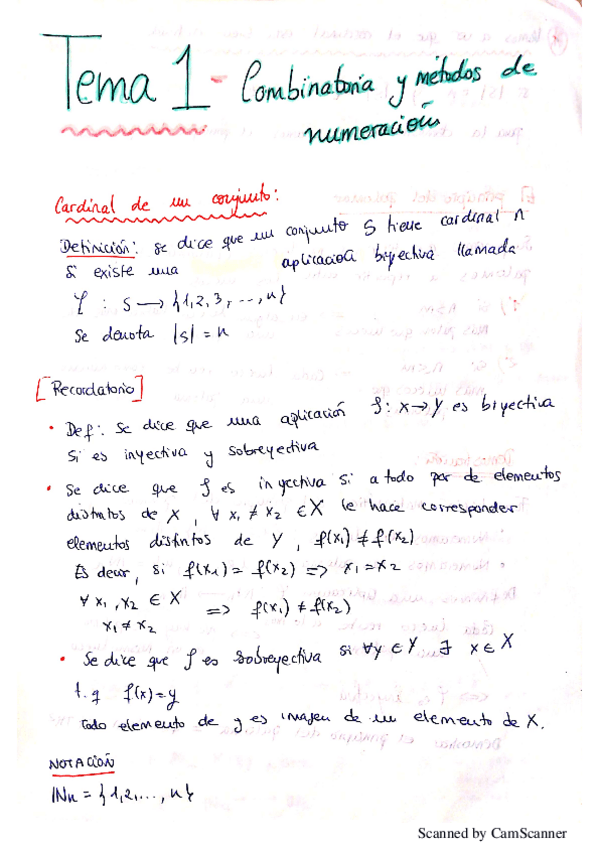 Tema 1 - Combinatoria y métodos de
numeración
Cardinal de un conjunto:
Definición: se dice que un conjunto S tiene cardinal n
si existe una aplicación biyectiva llamada
φ : S → {1,2,3,...,n}
Se denota |S| = n
[Recordatorio]
• Def: Se dice que una aplicación f: X→Y es biyectiva
si es inyectiva y sobreyectiva
• Se dice que f es inyectiva si a todo par de elementos
distintos de X, ∀ x₁ ≠ x₂ ∈ X le hace corresponder
elementos distintos de Y, f(x₁) ≠ f(x₂)
Es decir, si f(x₁) = f(x₂) => x₁ = x₂
∀ x₁, x₂ ∈ X => f(x₁) ≠ f(x₂)
x₁ ≠ x₂
• Se dice que f es sobreyectiva si ∀y ∈ Y ∃ x ∈ X
t.q f(x) = y
Todo elemento de y es imagen de un elemento de X.
NOTACIÓN
INn = {1,2,...,n}
Scanned by CamScanner